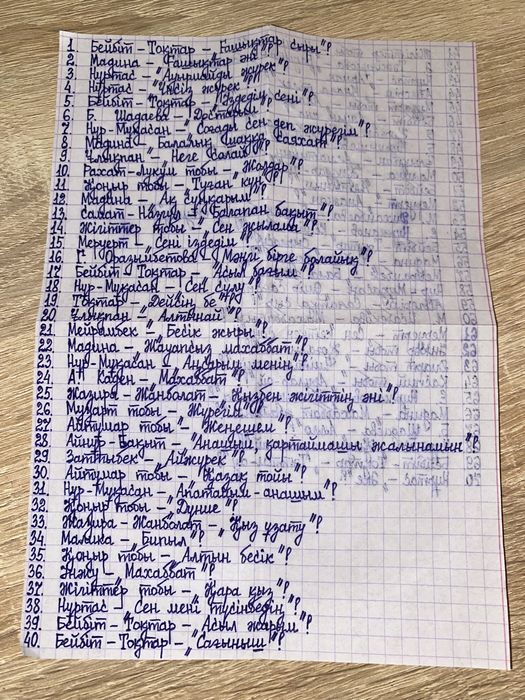 1. Бейбіт - Тоқтар - „Ғашықтар сыры"?
2. Мадина - „Ғашықтар әні"?
3. Нұртас - „Ауырмайды жүрек"?
4. Нұртас - „Үнсіз жүрек"?
5. Бейбіт - Тоқтар - „Іздедің, сені"?
6. Б. Шадаева - „Достарым"?
7. Нұр-Мұқасан - „Соғады сен деп жүрегім"?
8. Мадина - „Балалық шаққа саяхат"?
9. Ұлықпан - „Неге солай"?
10. Рахат-Лукум тобы - „Жолдар"?
11. Қоңыр тобы - „Туған күн"?
12. Мадина - „Ақ сұңқарым"?
13. Саят - Назгүл - „Балапан бақыт"?
14. Жігіттер тобы - „Сен жылама"?
15. Меруерт - „Сені іздедім"?
16. Г. Оразымбетова - „Мәңгі бірге болайық"?
17. Бейбіт - Тоқтар - „Асыл бағым"?
18. Нұр-Мұқасан - „Сен сұлу"?
19. Тоқтар - „Дейсің бе"?
20. Ұлықпан - „Алтынай"?
21. Мейрамбек - „Бесік жыры"?
22. Мадина - „Жауапсыз махаббат"?
23. Нұр-Мұқасан - „Аңсарым менің"?
24. Ай Каден - „Махаббат"?
25. Жазира - Жанболат - „Қызбен жігіттің әні"?
26. Музарт тобы - „Жүрегім"?
27. Айтұмар тобы - „Жеңешем"?
28. Айнұр - Бақыт - „Анашым, қартаймашы жалынамын"?
29. Заттыбек - „Айжүрек"?
30. Айтұмар тобы - „Қазақ тойы"?
31. Нұр-Мұқасан - „Апатайым-анашым"?
32. Қоңыр тобы - „Дүние"?
33. Жазира - Жанболат - „Қыз ұзату"?
34. Малика - „Бипыл"?
35. Қоңыр тобы - „Алтын бесік"?
36. Энжу - „Махаббат"?
37. Жігіттер тобы - „Қара қыз"?
38. Нұртас - „Сен мені түсінбедің"?
39. Бейбіт - Тоқтар - „Асыл жарым"?
40. Бейбіт - Тоқтар - „Сағыныш"?